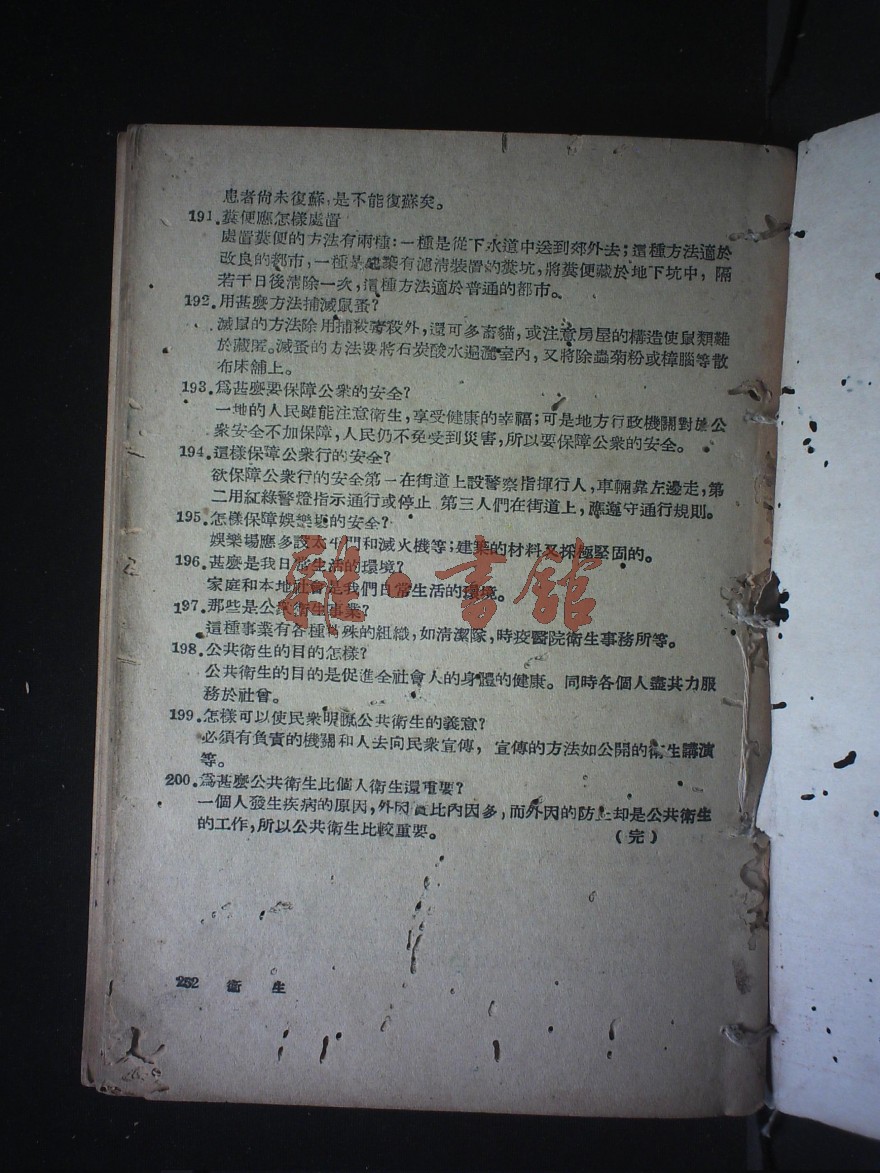 患者尙未復蘇,是不能復蘇矣。
191.糞便應怎樣處置
處置糞便的方法有兩種:一種是從下水道中送到郊外去;這種方法適於
改良的都市,一種是建築有濾淸裝置的糞坑,將糞便藏於地下坑中,隔
若干日後淸除一次,這種方法適於普通的都市。
192.用甚麼方法捕滅鼠蚤?
滅鼠的方法除用捕殺毒殺外,還可多畜貓,或注意房屋的構造使鼠類難
於藏匿。滅蚤的方法要將石炭酸水遍灑室內,又將除蟲菊粉或樟腦等散
布床舖上。
193.爲甚麼要保障公衆的安全?
一地的人民雖能注意衛生,享受健康的幸福;可是地方行政機關對於公
衆安全不加保障,人民仍不免受到災害,所以要保障公衆的安全。
194.這樣保障公衆行的安全?
欲保障公衆行的安全第一在街道上設警察指揮行人,車輛靠左邊走,第
二用紅綠警燈指示通行或停止 第三人們在街道上,應遵守通行規則。
195.怎樣保障娛樂場的安全?
娛樂場應多設太平門和滅火機等;建築的材料要採極堅固的。
196.甚麼是我日常生活的環境?
家庭和本地社會是我們日常生活的環境。
197.那些是公衆衛生事業?
這種事業有各種特殊的組織,如淸潔隊,時疫醫院衛生事務所等。
198.公共衛生的目的怎樣?
公共衛生的目的是促進全社會人的身體的健康。同時各個人盡其力服
務於社會。
199.怎樣可以使民衆明瞭公共衛生的義意?
必須有負責的機關和人去向民衆宣傳,宣傳的方法如公開的衛生講演
等。
200.爲甚麼公共衛生比個人衛生還重要?
一個人發生疾病的原因,外因 比內因多,而外因的防止却是公共衛生
的工作,所以公共衛生比較重要。 (完)
252 衛 生
雜·書館